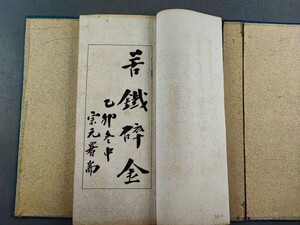 苦鐵碎金
乙卯冬中
宗元署耑